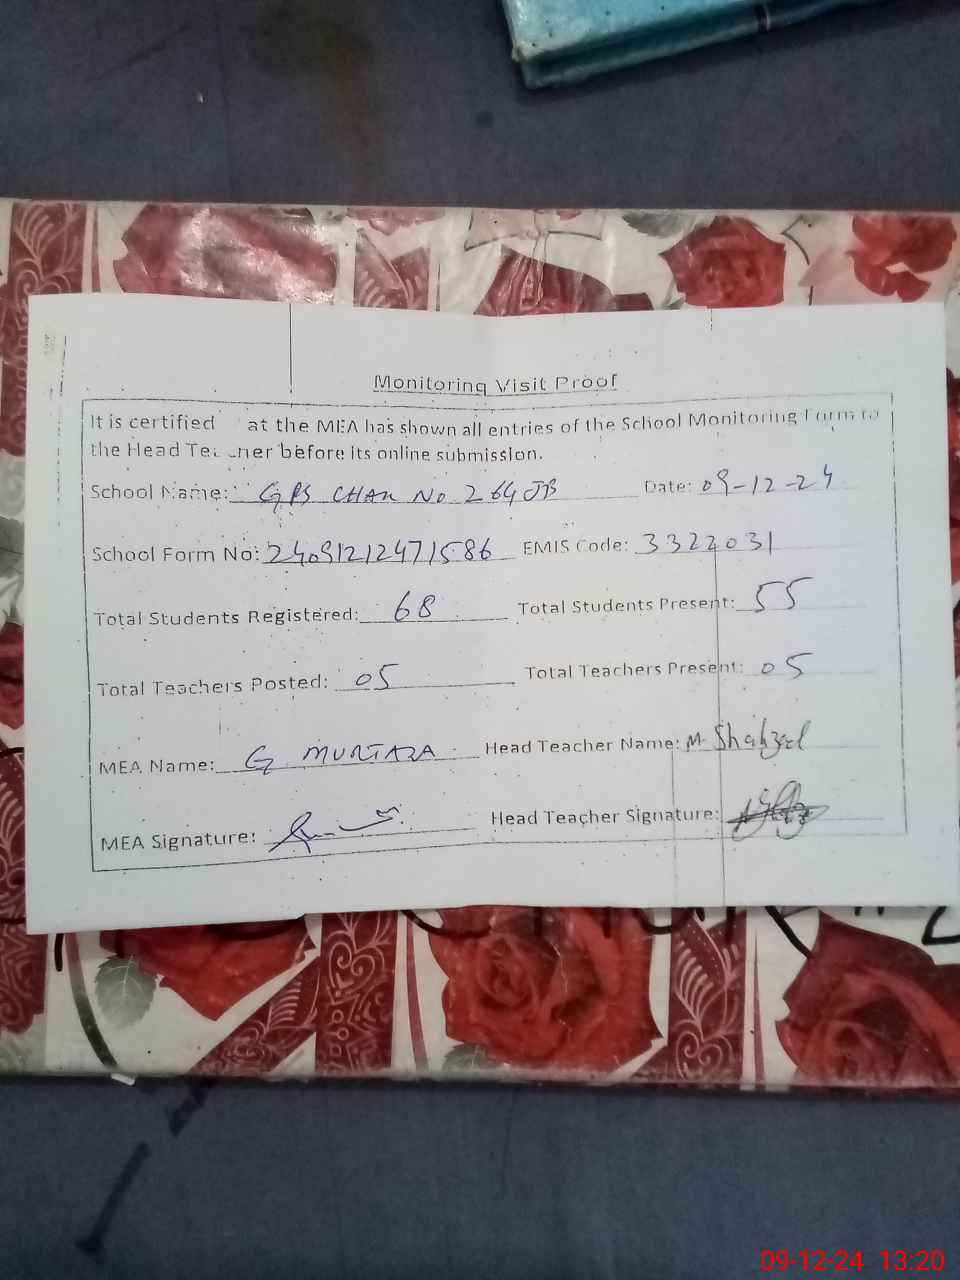 Monitoring Visit Proof
It is certified at the MEA has shown all entries of the School Monitoring Form to
the Head Teacher before its online submission.
School Name: GPS CHAK No 264 JB Date: 09-12-24
School Form No: 24091212471586 EMIS Code: 3322031
Total Students Registered: 68 Total Students Present: 55
Total Teachers Posted: 05 Total Teachers Present: 05
MEA Name: G MURTAZA Head Teacher Name: M Shahzad
MEA Signature: Head Teacher Signature:
09-12-24 13:20